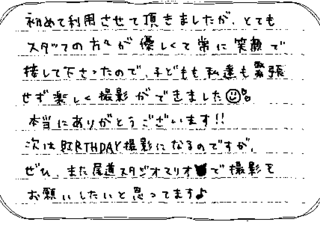 初めて利用させて頂きましたが、とても
スタッフの方々が優しくて常に笑顔で
接して下さったので、子どもも私達も緊張
せず楽しく撮影ができました
本当にありがとうございます!!
次はBIRTHDAY撮影になるのですが、
ぜひ、また尾道スタジオマリオで撮影を
お願いしたいと思ってます♪